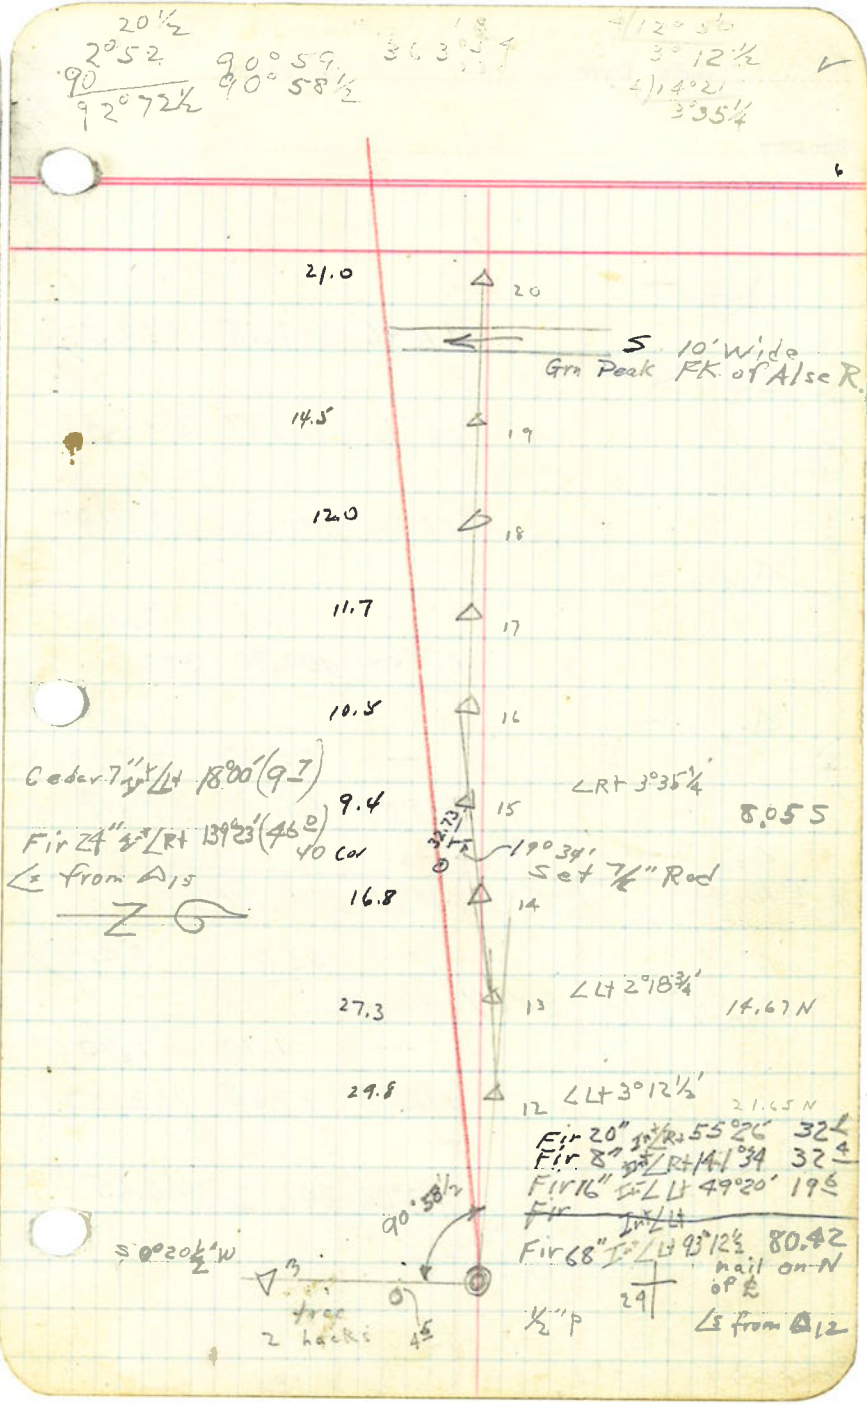 20 1/2
2°52
90
92°72 1/2
90°59
90°58 1/2
12°50
3°12 1/2
4)14°21
3°35 1/4
6
21.0
20
S 10' Wide
Grn Peak FK of Alse R.
14.5
19
12.0
18
11.7
17
10.5
16
Cedar 7" ∠Lt 18°00' (9 7)
9.4
15
∠Rt 3°35 1/4'
8.05 S
32.73
Fir 24" ∠Rt 139°23' (46 0)
40
Cor
19°34'
∠s from △15
Set "Rod
16.8
14
27.3
13
∠Lt 2°18 3/4'
14.67 N
29.8
12
∠Lt 3°12 1/2'
21.65 N
Fir 20" ∠Rt 55°26' 32
Fir 8" ∠Rt 141°34 32 4
Fir 16" ∠Lt 49°20' 19 6
Fir ∠Lt
90°58 1/2
Fir 68" ∠Lt 93°12 1/2 80.42
nail on N
of ℄
S 0°20 1/2' W
3
tree
2 hacks
4 5
29
1/2" P
∠s from △12